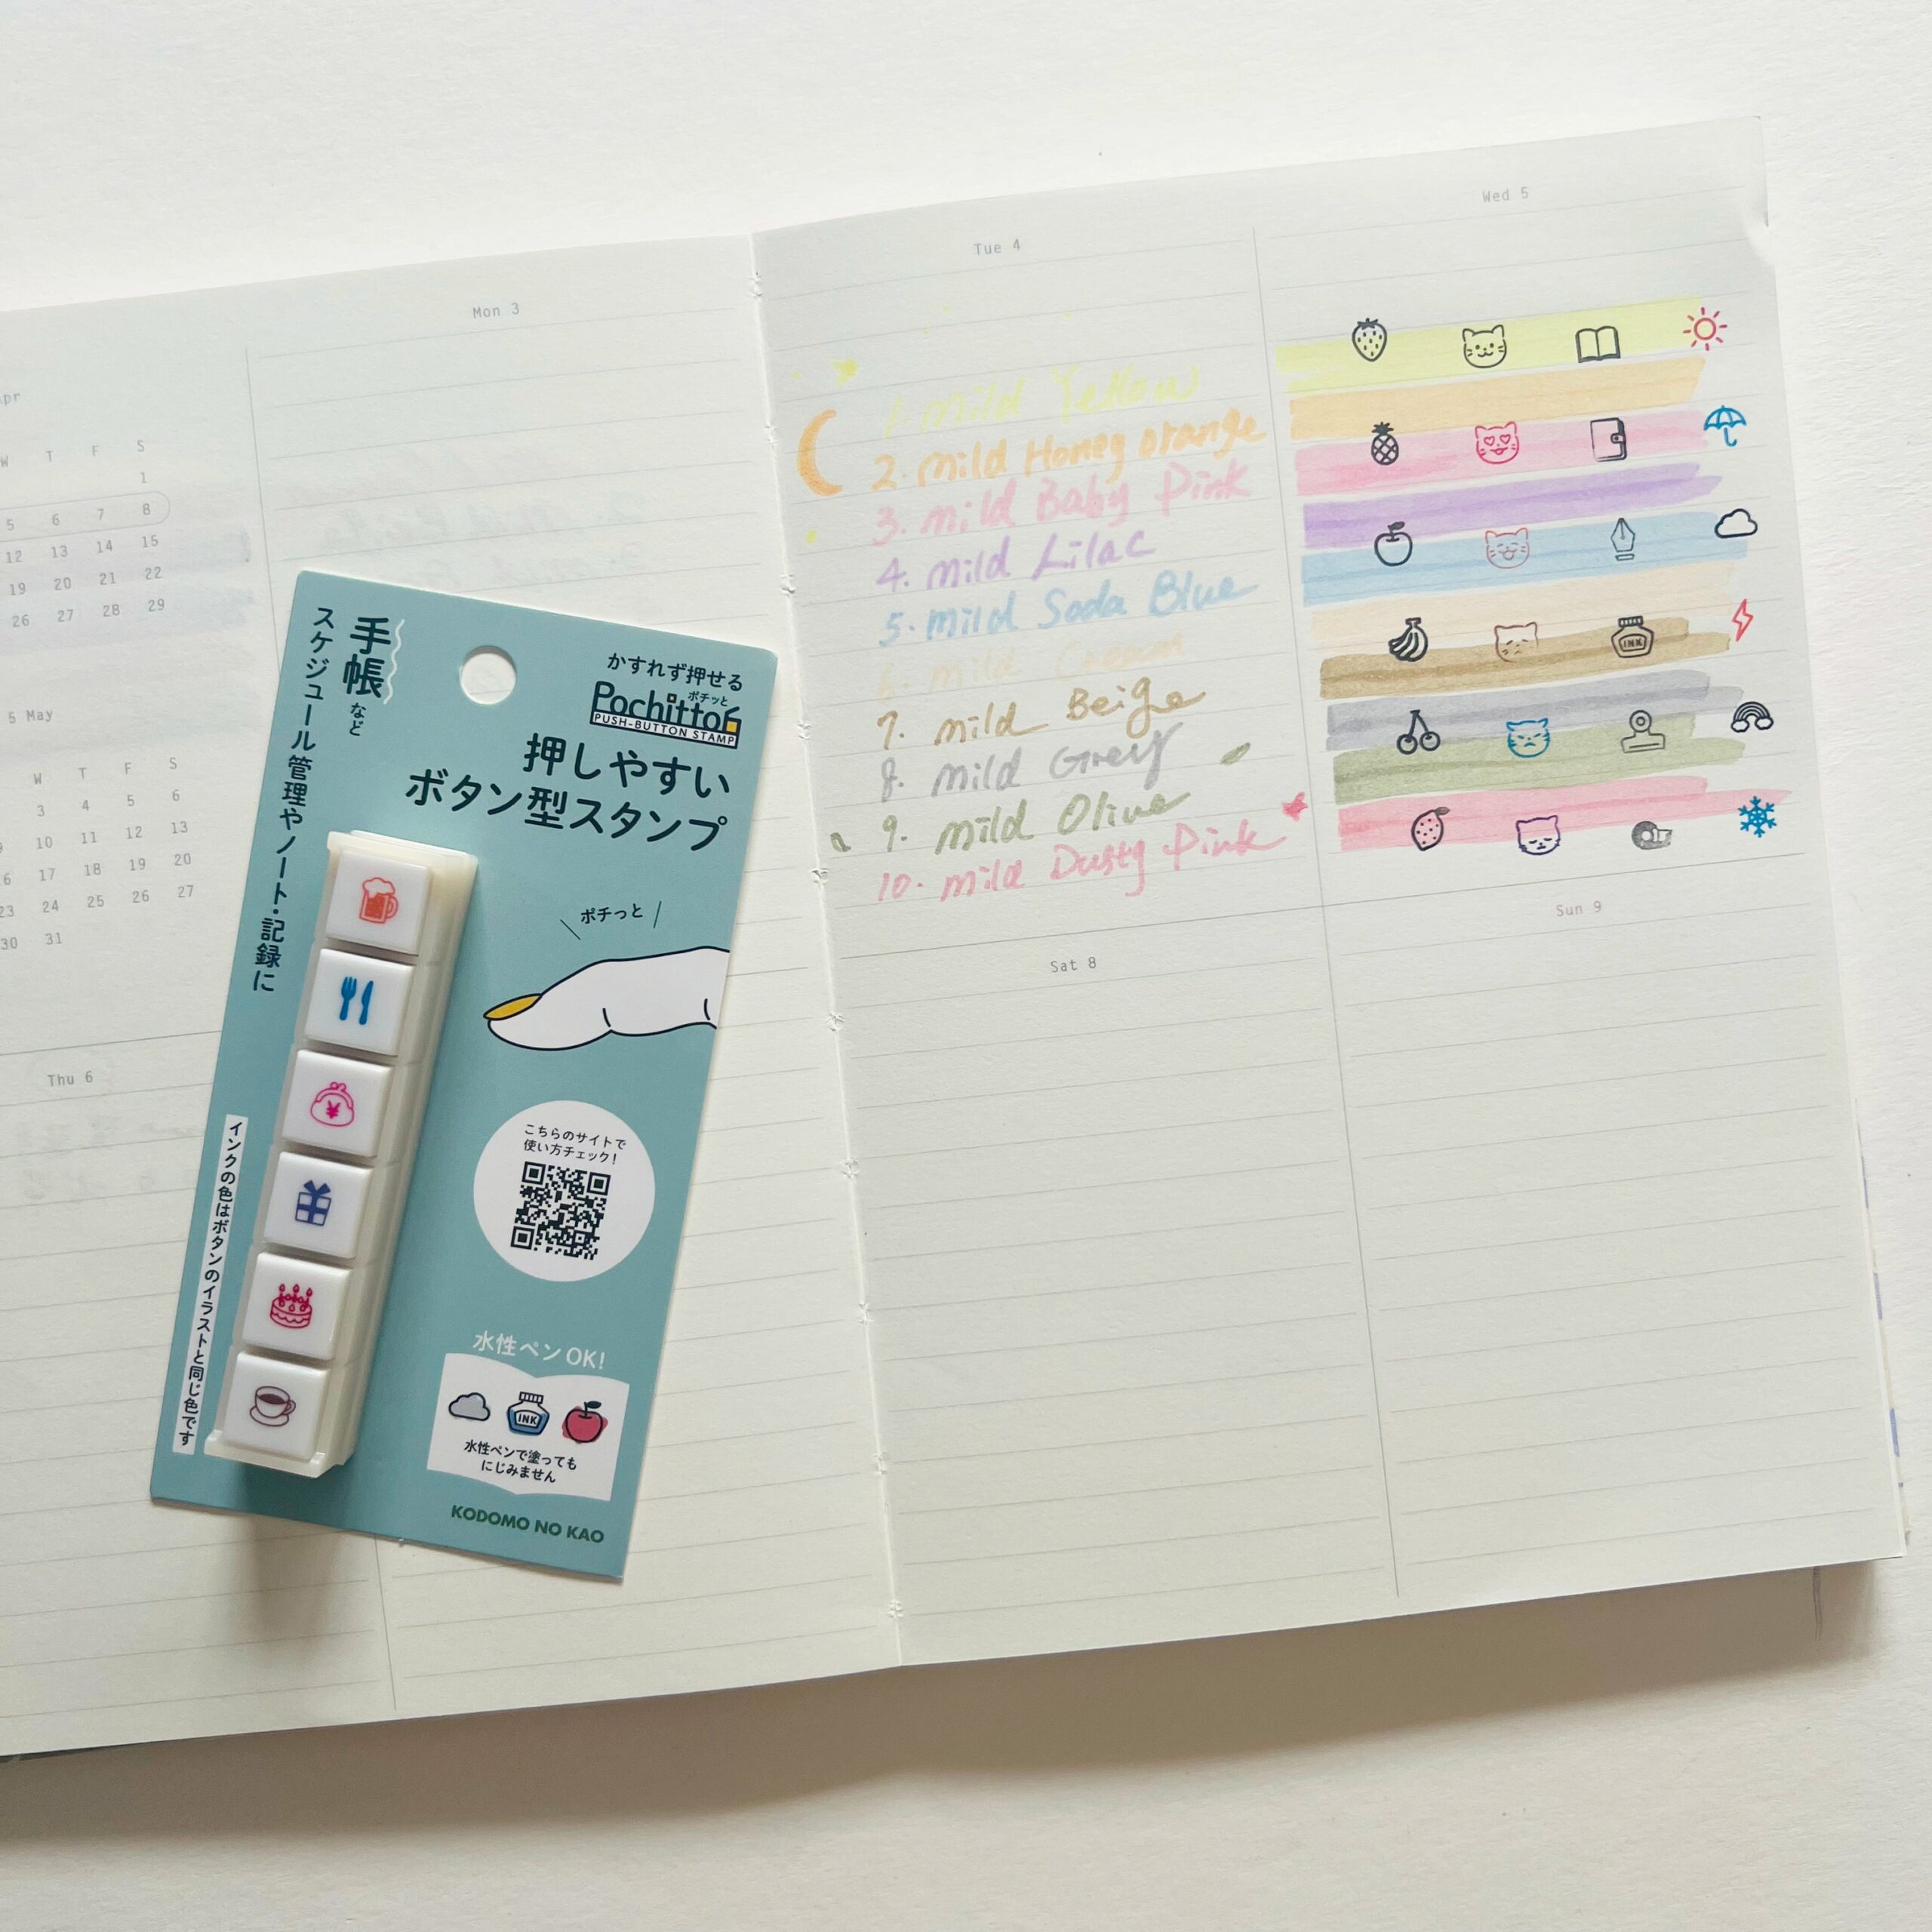 Mon 3
W T F S
1
5 6 7 8
12 13 14 15
19 20 21 22
26 27 28 29
5 May
W T F S
3 4 5 6
10 11 12 13
17 18 19 20
23 24 25 26 27
30 31
Thu 6
手帳など
スケジュール管理やノート・記録に
かすれず押せる
ポチッと
Pochitto6
PUSH-BUTTON STAMP
押しやすい
ボタン型スタンプ
ポチっと
¥
こちらのサイトで
使い方チェック!
インクの色はボタンのイラストと同じ色です
水性ペンOK!
INK
水性ペンで塗っても
にじみません
KODOMO NO KAO
Tue 4
1. mild Yellow
2. mild Honey orange
3. mild Baby Pink
4. mild Lilac
5. mild Soda Blue
6. mild Cream
7. mild Beige
8. mild Grey
9. mild Olive
10. mild Dusty Pink
Wed 5
INK
Sat 8
Sun 9